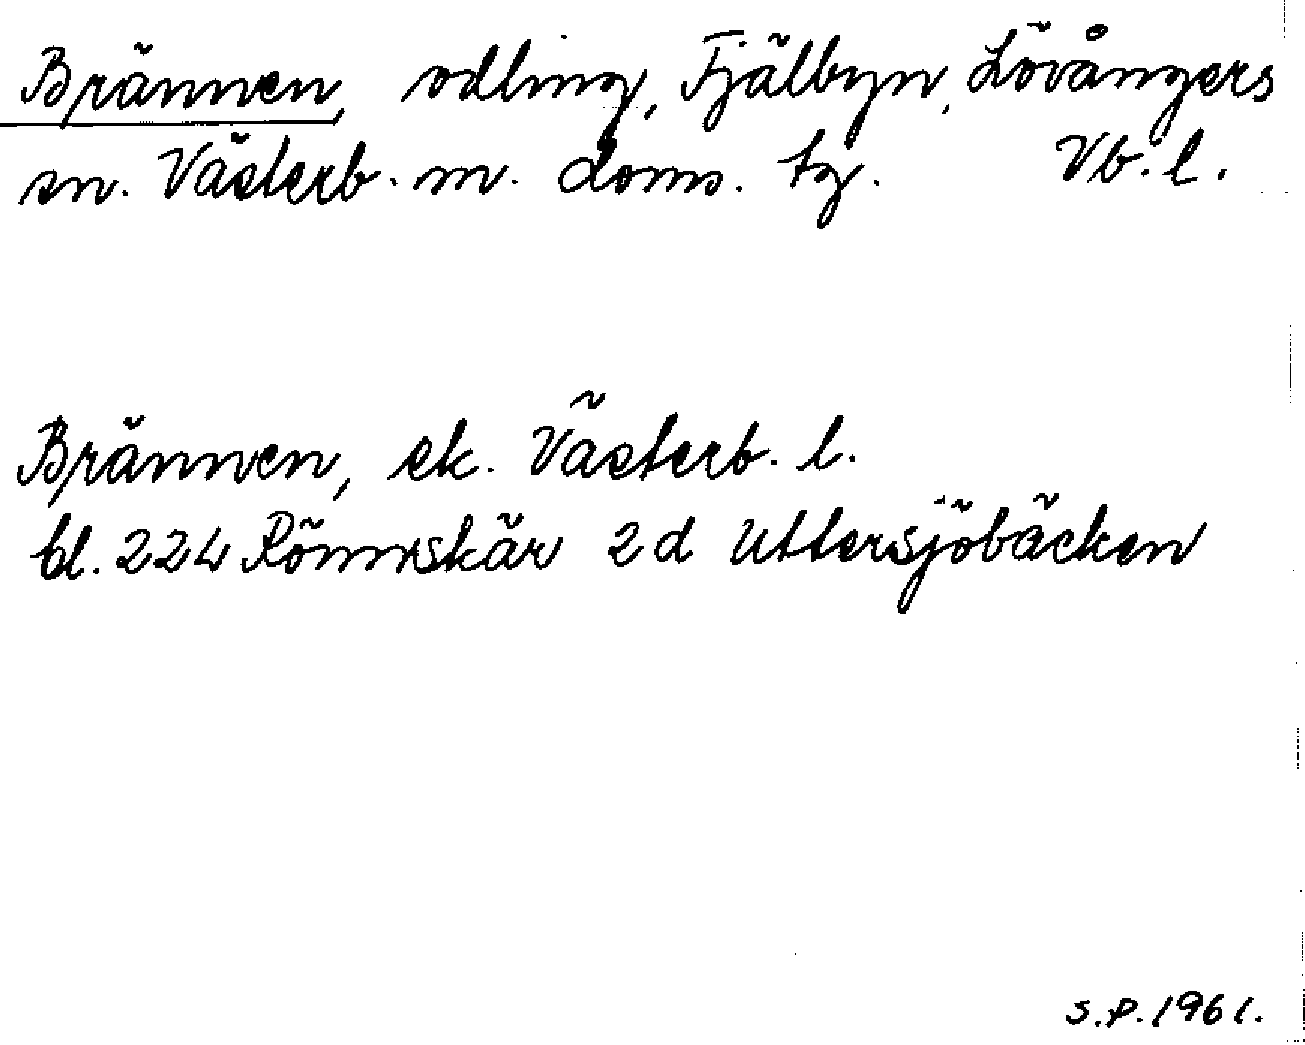 Brännen, odling, Fjälbyn, Lövångers
sn. Västerb. m. doms. tg. Vb. l.
Brännen, ek. Västerb. l.
bl. 224 Rönnskär 2d Uttersjöbäcken
S.P. 1961.